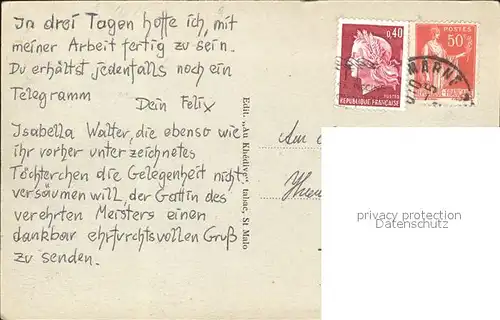 In drei Tagen hoffe ich, mit
meiner Arbeit fertig zu sein.
Du erhältst jedenfalls noch ein
Telegramm
Dein Felix
Isabella Walter, die ebenso wie
ihr vorher unterzeichnetes
Töchterchen die Gelegenheit nicht
versäumen will, der Gattin des
verehrten Meisters einen
dankbar ehrfurchtsvollen Gruß
zu senden.
Edit. „Au Khédive" tabac, St Malo
0,40
POSTES
REPUBLIQUE FRANÇAISE
POSTES
50c
MARNE
An
privacy protection
www.oldthing.de